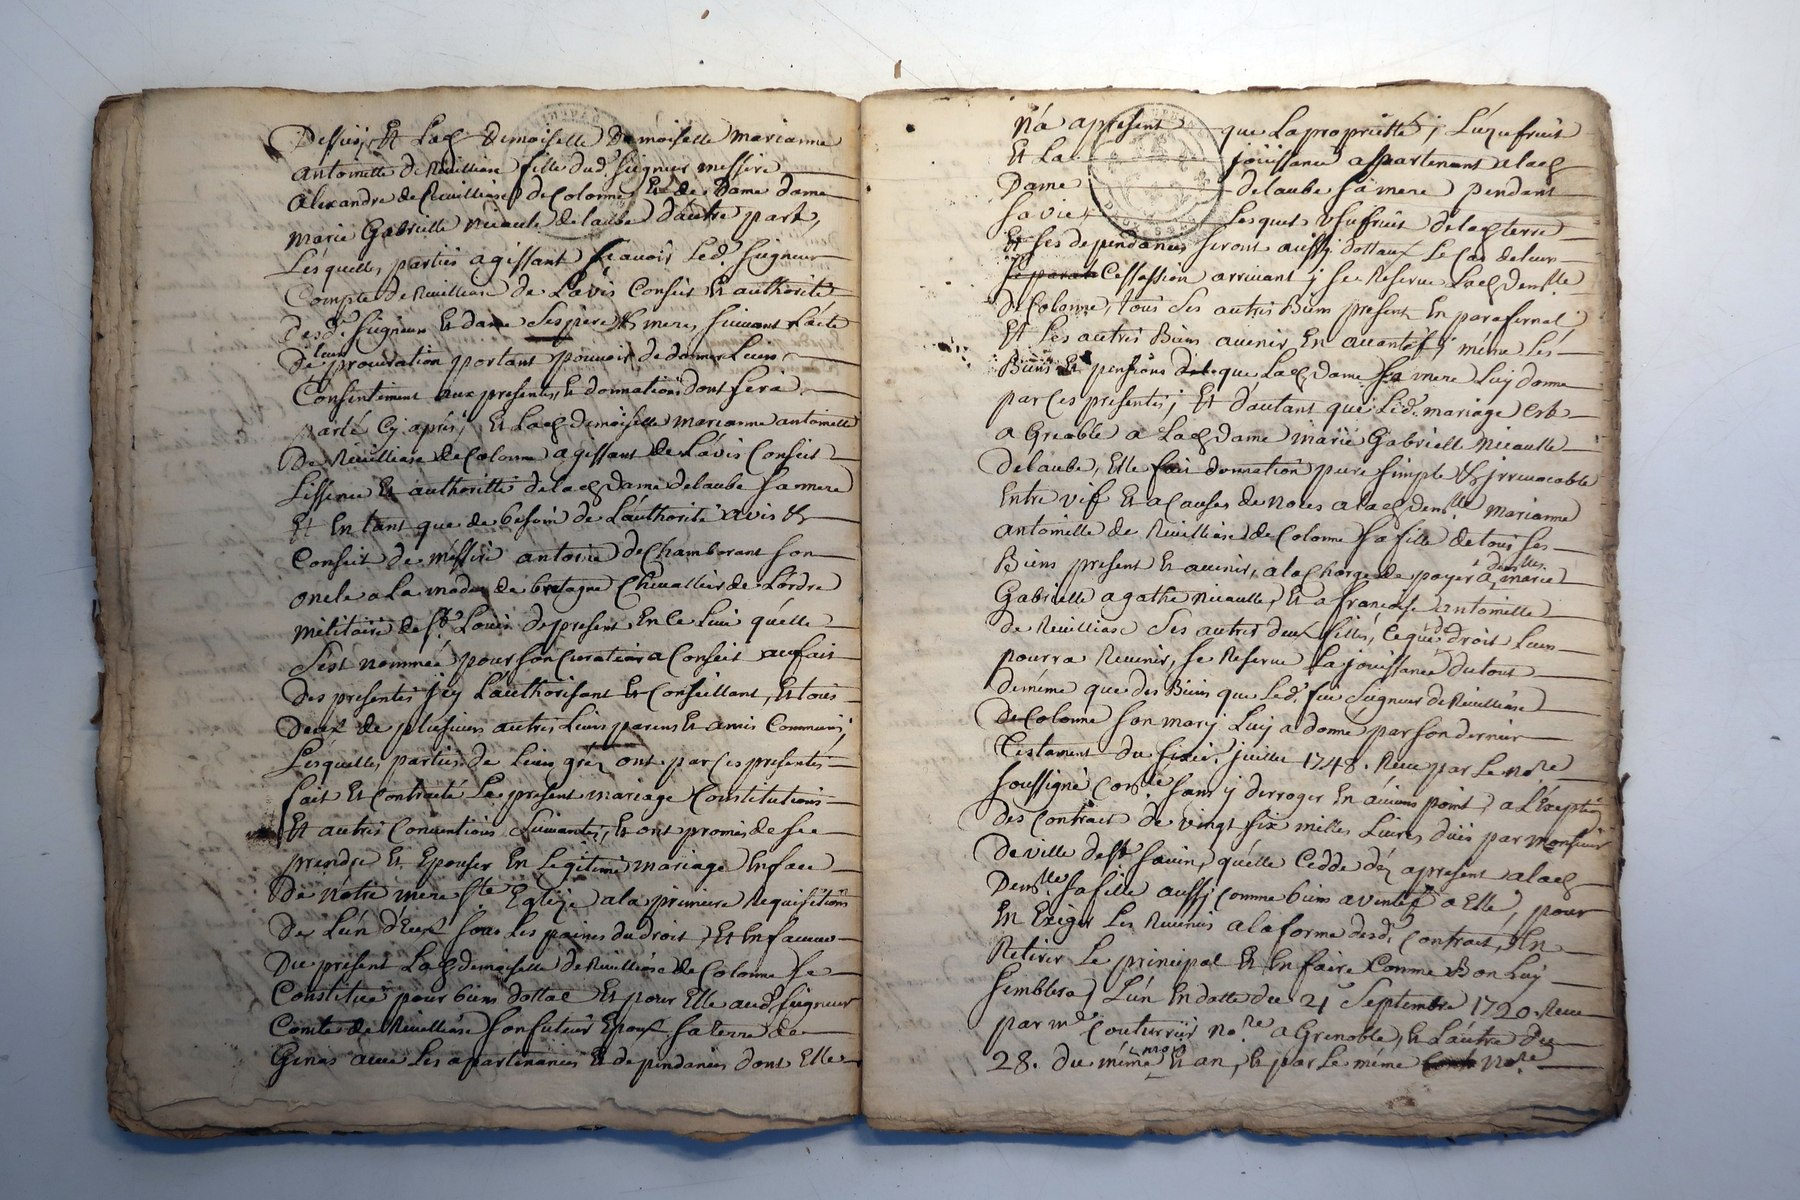 Dessus, Et Lad. Demoiselle Demoiselle marianne
antoinette de Reuilliase fille dud. Seigneur messire
alexandre de Reuilliase de Colonne Et de Dame dame
marie Gabrielle nicaule delaube D'autre part,
Lesquelles parties agissant sçavoir Led. Seigneur
Compte de Reuilliase de Lavis Conseit Et authorité
desd. Seigneur Et dame Ses pere & mere, suivant L'acte
De leur procuration portant pouvoir de donner Leur
Consentement aux presentes, & donnations dont sera
parlé Cy aprés; Et Lad. demoiselle marianne antoinette
de Reuilliase de Colonne agissant de L'avis Conseit
Lissence Et authorité delad. dame delaube Sa mere
Et En tant que de besoin de L'authorité avis &
Conseit de messire antoine de Chamborant Son
oncle a La mode de bretagne Chevallier de L'ordre
militaire de St. Louis depresent En Ce Lieu qu'elle
S'est nommée pour Son Curateur a Conseit au fait
des presentes jcy L'authorisant Et Conseillant, Et tous
Deux de plusieurs autres Leurs parens Et amis Communs;
Lesquelles parties de Leurs gréz ont par Ces presentes
fait Et Contracté Le present mariage Constitutions
Et autres Conventions Suivantes, Et ont promis de se
prendre Et Epouser En Legitime mariage En face
De nôtre mere Ste. Eglize a la premiere Requisition
De L'un d'Eux Sous Les peines du droit, Et En faveur
Du present Lad. demoiselle de Reuilliase de Colonne Se
Constitue pour biens dottal Et pour Elle aud. Seigneur
Comte de Reuilliase Son futeur Epoux Sa terre de
Genas avec Les apartenances Et dependances dont Elle
n'a apresent que La proprietté, L'uzufruit
Et La jouissance appartenant a lad.
Dame delaube Sa mere pendant
Sa vie, Lesquels Usufruit delad. terre
Et ses dependances seront aussy dottaux Le Cas de leur
Cessassion arrivant, se Reserve Lad. demlle.
de Colonne, tous Ses autres Biens present En parafernal,
Et Les autres Biens avenir En avantif, meme Les
Biens Et pensions que Lad. Dame Sa mere Luy donne
par Ces presentes; Et d'autant que Led. mariage Est
a Greable a Lad. Dame marie Gabrielle nicaulle
delaube, Elle fait donnation pure simple & jrrevocable
Entre vif Et a Causes de noces a lad. demlle. marianne
antoinette de Reuilliase de Colonne Sa fille de tous ses
Biens present Et avenir, a la Charge de payer a demlles. marie
Gabrielle agathe nicaulle, Et a francoise antoinette
de Reuilliase Ses autres deux filles, Ce que de droit Leur
pourra Revenir, se Reserve La jouissance du tout
demême que des Biens que Led. feu Seigneur de Reuilliase
de Colonne Son mary Luy a donné par Son dernier
Testament du juillet 1748. Receu par Le nore.
Soussigné Sans y derroger En aucuns point, a L'Exeption
Des Contrats de vingt six milles Livres dues par monsieur
De ville de St. Sauin, qu'elle Cedde déz apresent a lad.
Demlle. Sa fille aussy Comme biens aventif a Elle, pour
En Exiger Les Revenus a la forme desd. Contrats, En
Retirer Le principal Et En faire Comme Bon Luy
Semblera, L'un En datte du 21 Septembre 1720. Receu
par me. Couturrier nore. a Grenoble, Et L'autre Du
28. du même mois Et an, Et par Le même nore.